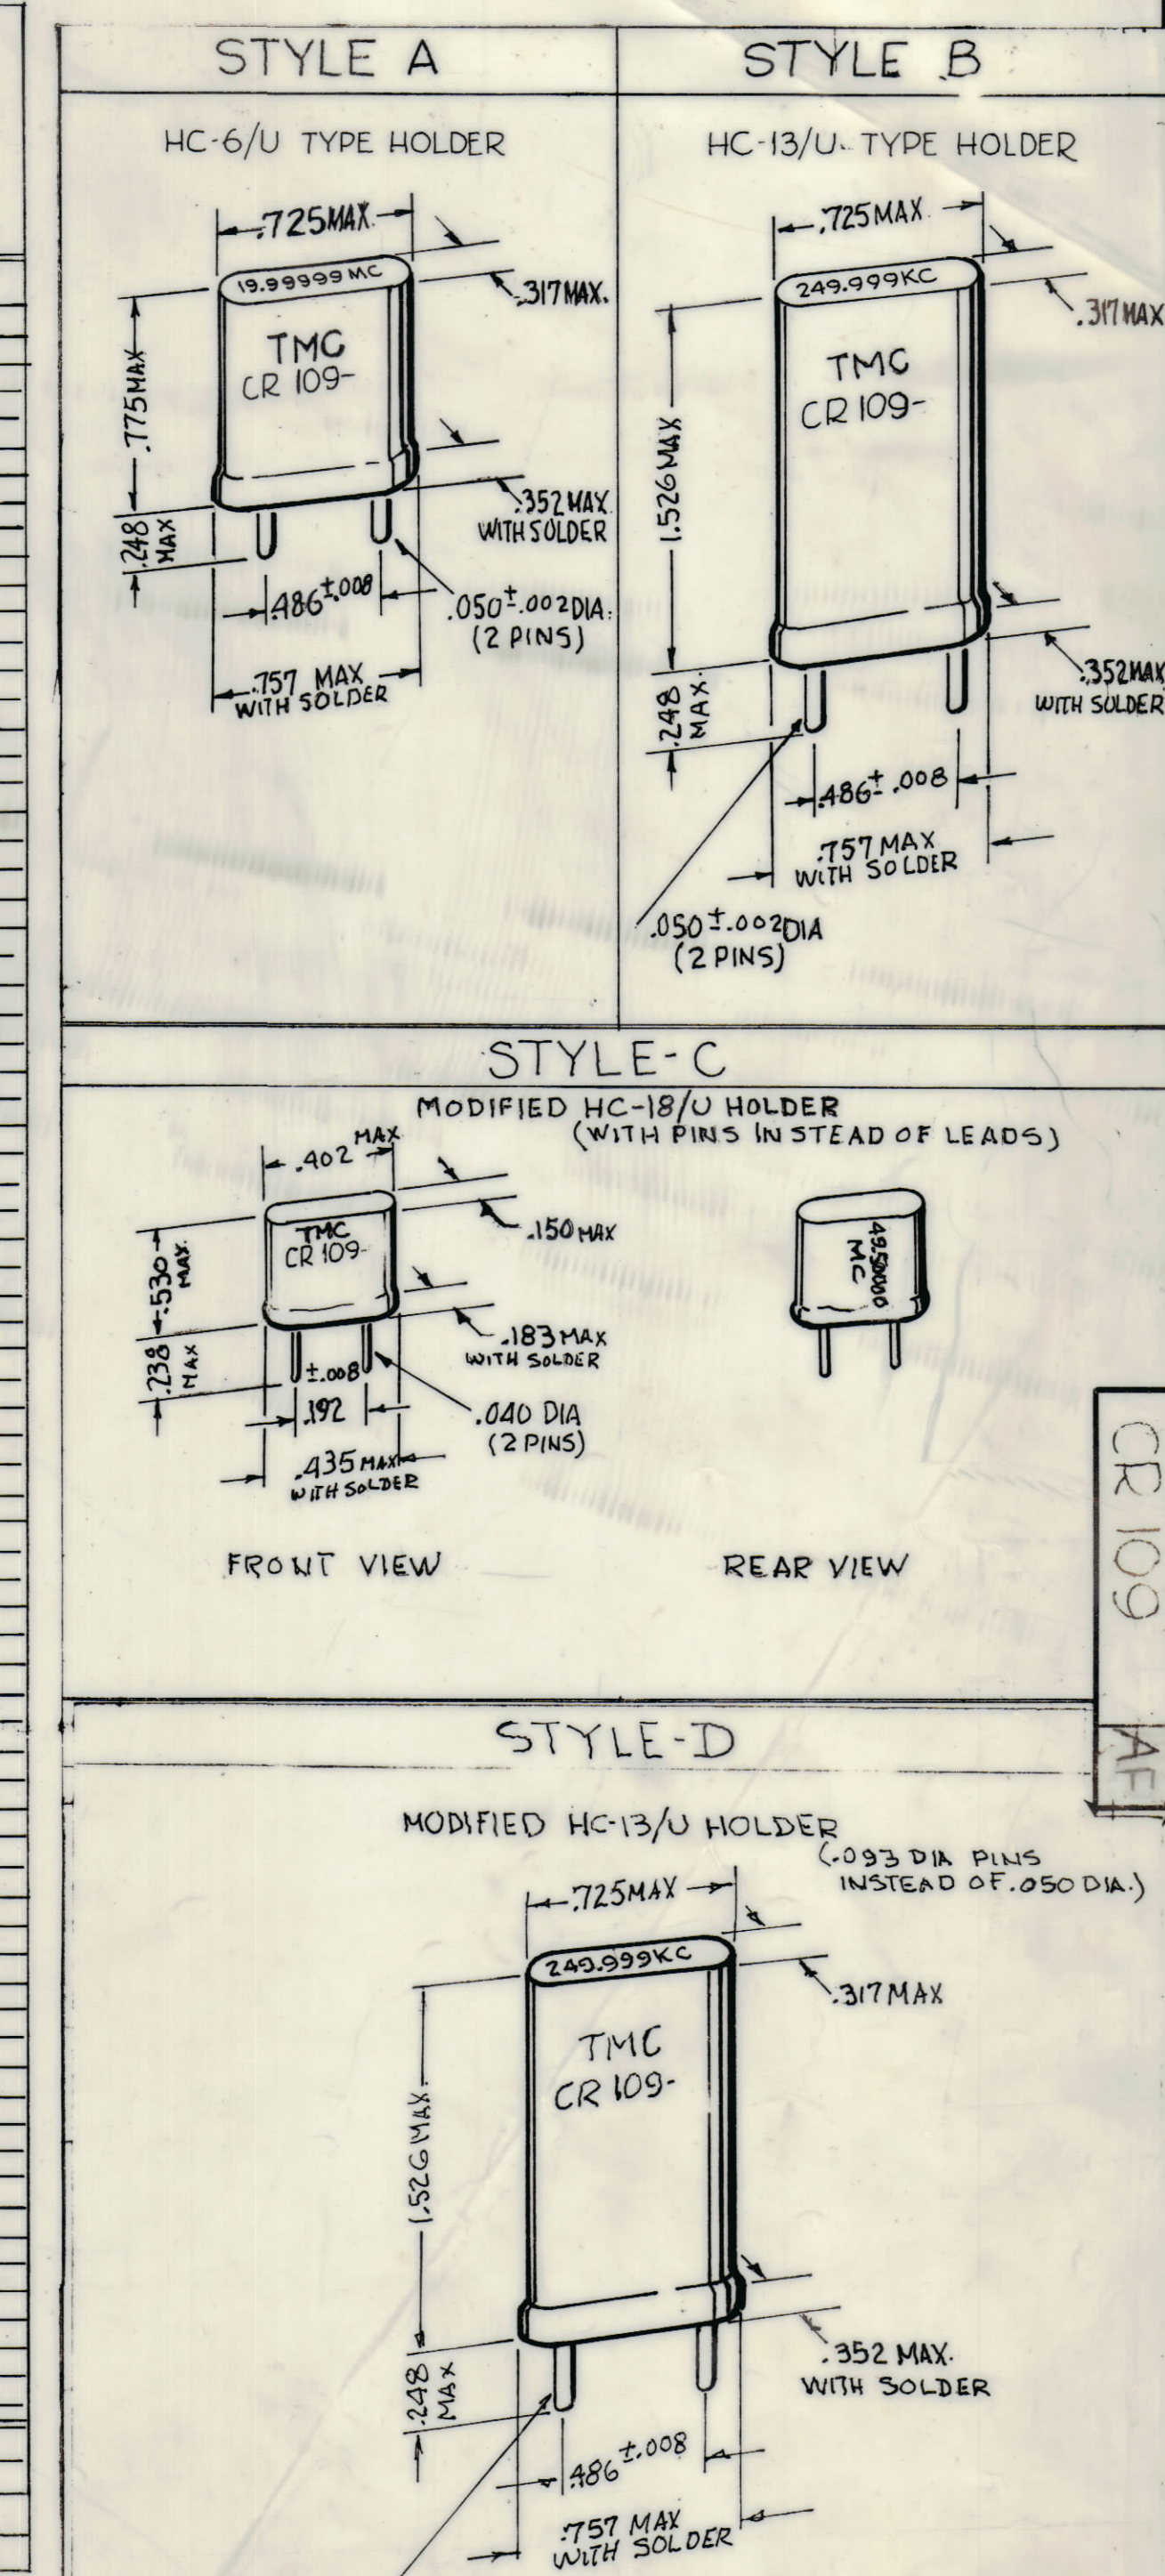 STYLE A
HC-6/U TYPE HOLDER
.725 MAX.
19.99999 MC
.317 MAX.
TMC
CR 109-
.775 MAX
.248
MAX
.352 MAX.
WITH SOLDER
.486 ±.008
.050 ±.002 DIA.
(2 PINS)
.757 MAX
WITH SOLDER
STYLE B
HC-13/U TYPE HOLDER
.725 MAX.
249.999 KC
.317 MAX
TMC
CR 109-
1.526 MAX
.248
MAX.
.352 MAX
WITH SOLDER
.486 ± .008
.757 MAX
WITH SOLDER
.050 ±.002 DIA
(2 PINS)
STYLE-C
MODIFIED HC-18/U HOLDER
(WITH PINS INSTEAD OF LEADS)
.402 MAX
TMC
CR 109-
.150 MAX
.530
MAX.
.238
MAX
.183 MAX
WITH SOLDER
±.008
.192
.040 DIA
(2 PINS)
.435 MAX
WITH SOLDER
FRONT VIEW
49.50000
MC
REAR VIEW
CR 109
AF
STYLE-D
MODIFIED HC-13/U HOLDER
(.093 DIA PINS
INSTEAD OF .050 DIA.)
.725 MAX
249.999 KC
.317 MAX
TMC
CR 109-
1.526 MAX.
.248
MAX
.352 MAX.
WITH SOLDER
.486 ±.008
.757 MAX
WITH SOLDER